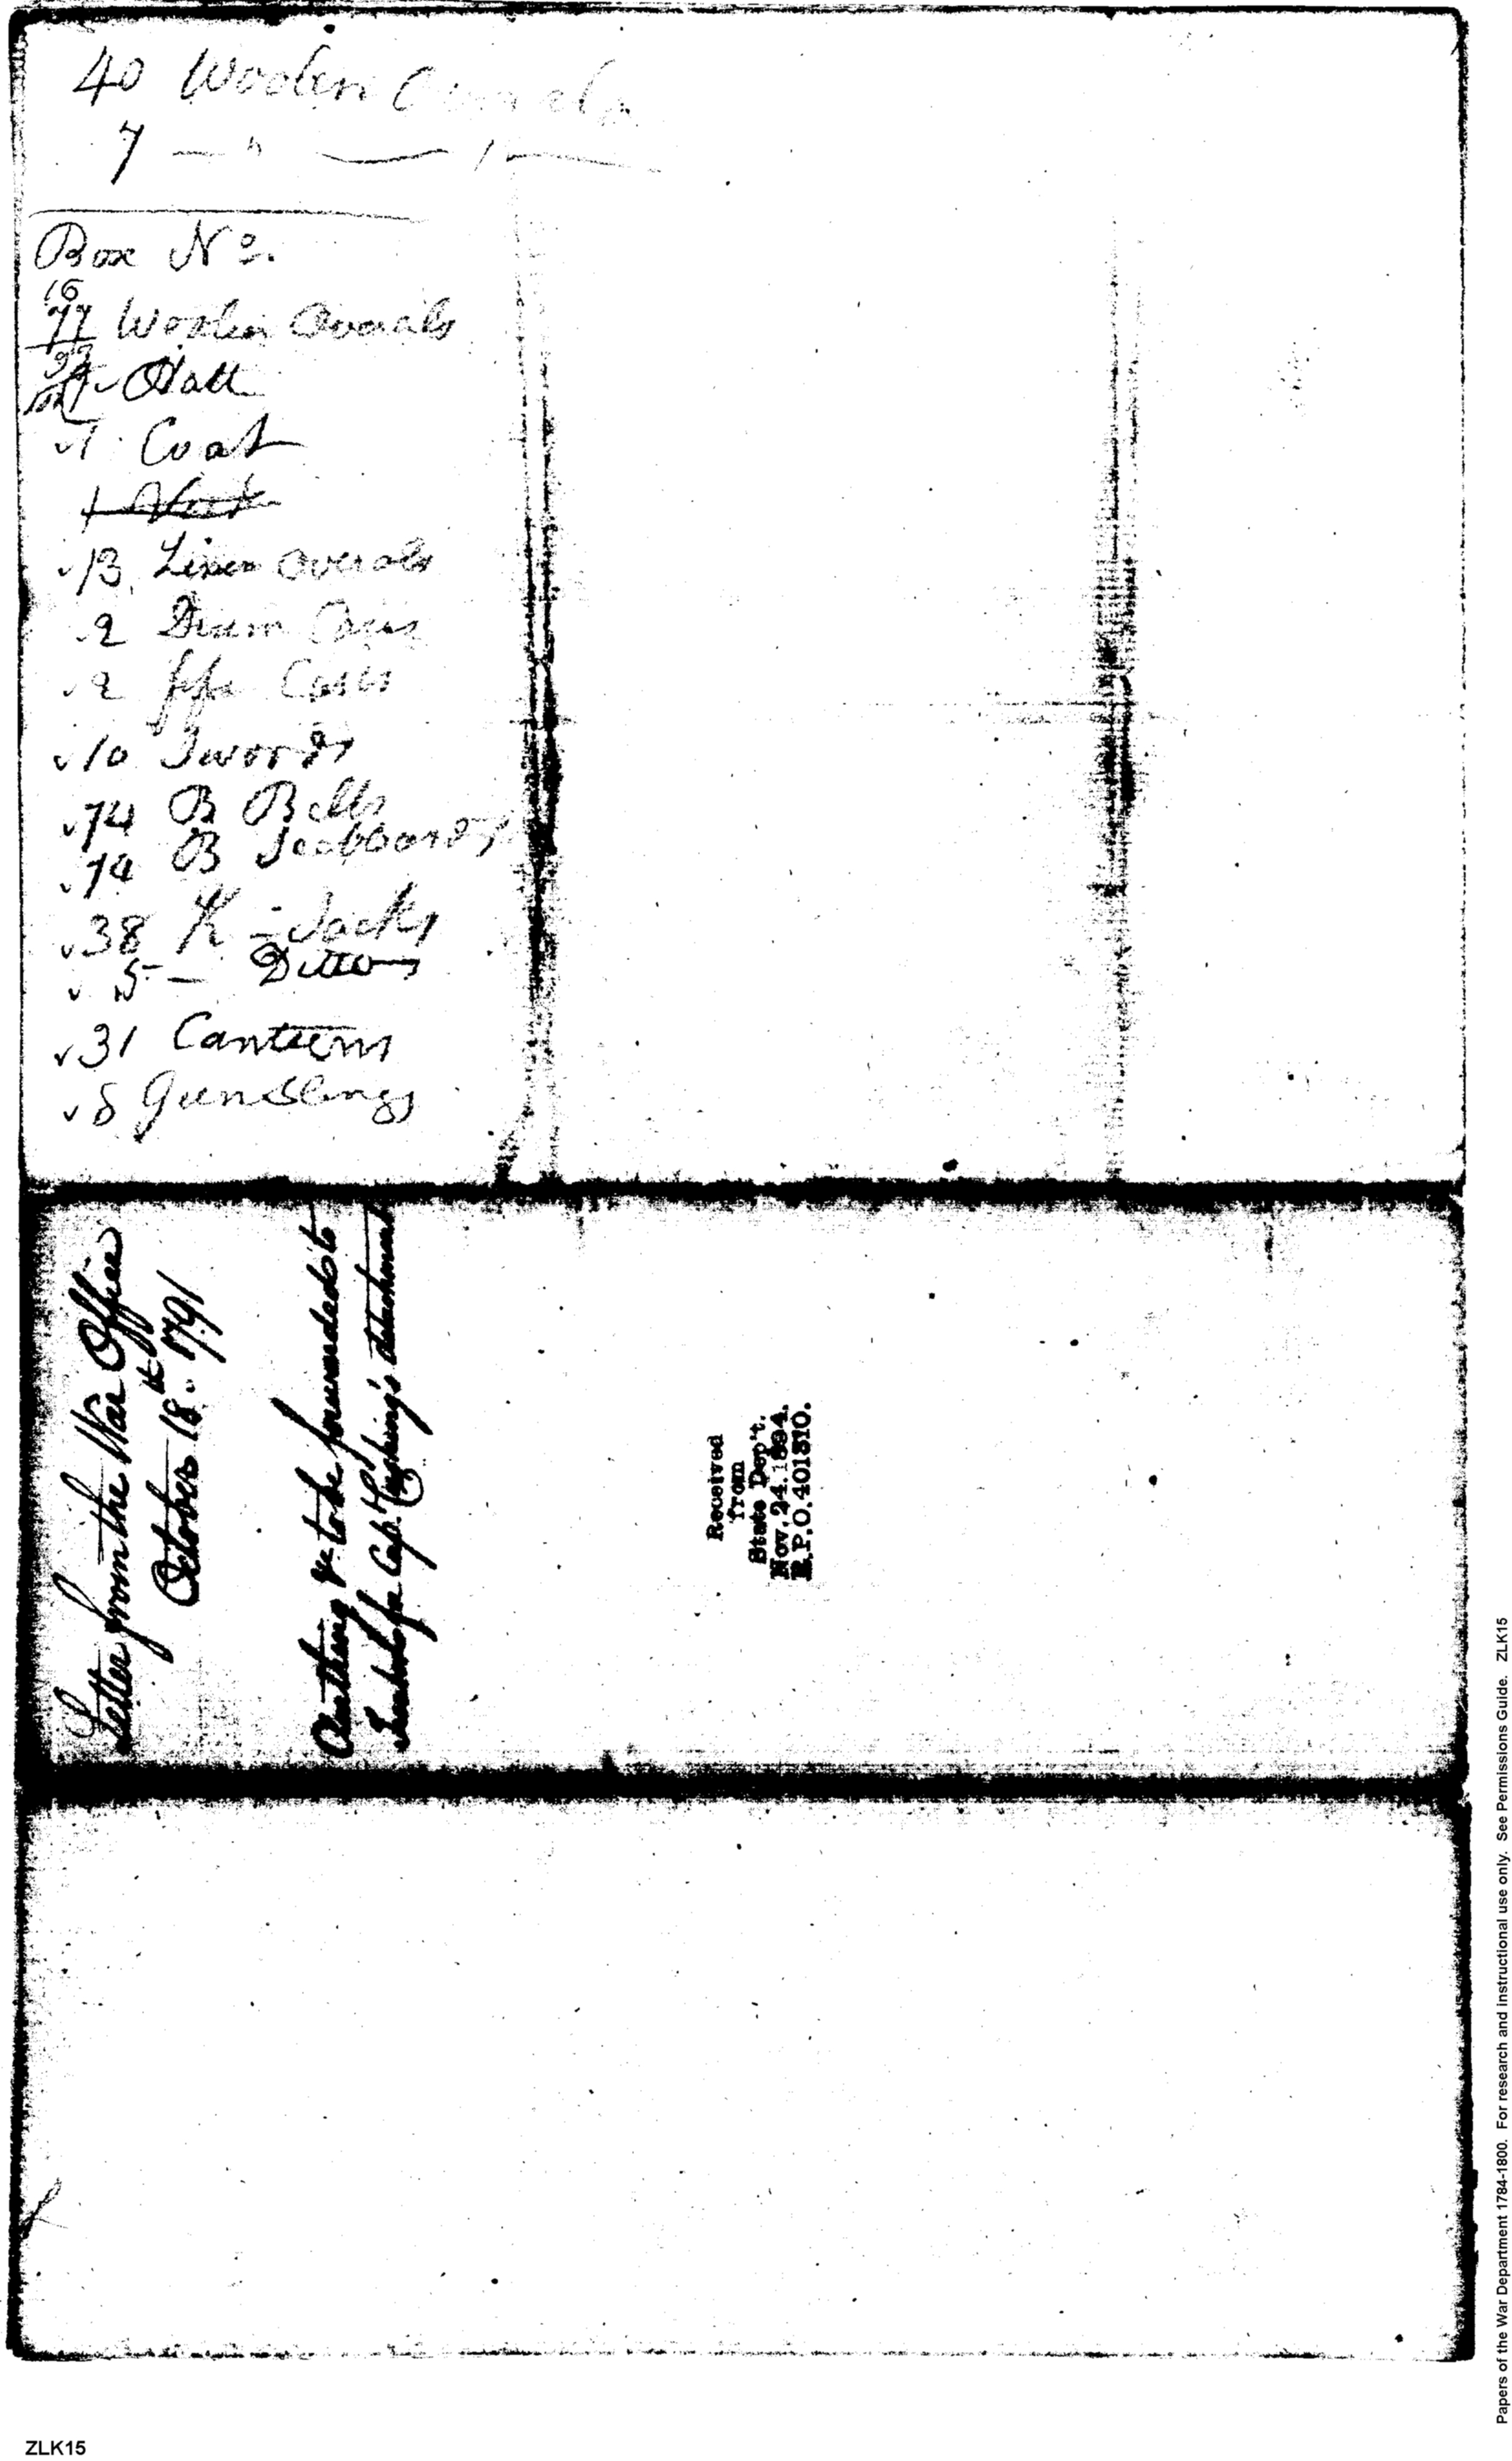 40 Woolen Overals
7 — " — / —
Box No.
16
77 Woolen Overals
Hatt
1 Coat
1 Vest
13 Linen Overals
2 Drum Cases
2 fife Cases
10 Swords
74 B Belts
74 B Scabbards
38 K - Sacks
5 — Ditto
31 Canteens
8 Gun Slings
Letter from the War Office
October 18th 1791
Cloathing &c to be forwarded to
for Capt. Cushing's detachment
Received
from
State Dep't.
Nov. 24. 1894.
R.P.O. 401310.
Papers of the War Department 1784-1800. For research and instructional use only. See Permissions Guide. ZLK15
ZLK15